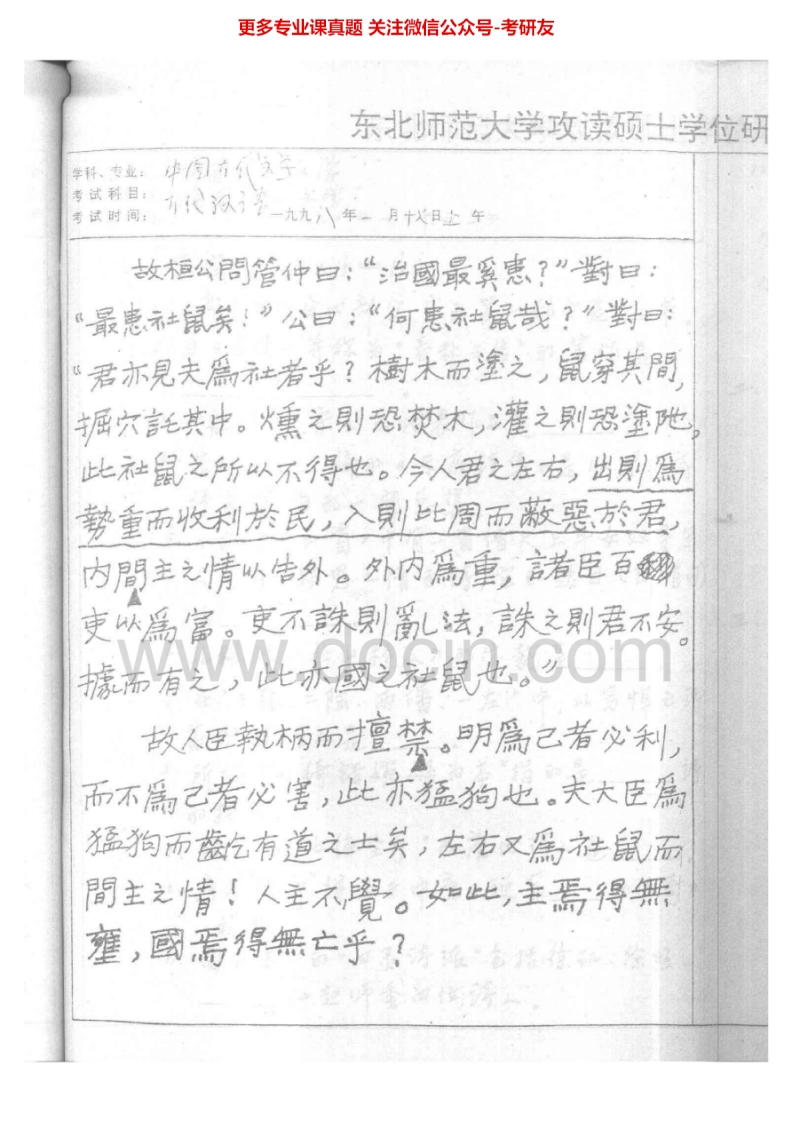 更多专业课真题 关注微信公众号-考研友
东北师范大学攻读硕士学位研
学科、专业： 中国古代文学
考试科目： 古代汉语
考试时间： 一九九八年一月十八日上午
故桓公問管仲曰：“治國最奚患？”對曰：
“最患社鼠矣！”公曰：“何患社鼠哉？”對曰：
“君亦見夫爲社者乎？樹木而塗之，鼠穿其間，
掘穴託其中。燻之則恐焚木，灌之則恐塗阤，
此社鼠之所以不得也。今人君之左右，出則爲
勢重而收利於民，入則比周而蔽惡於君，
内間主之情以告外。外内爲重，諸臣百
吏以爲富。吏不誅則亂法，誅之則君不安。
據而有之，此亦國之社鼠也。”
故人臣執柄而擅禁。明爲己者必利，
而不爲己者必害，此亦猛狗也。夫大臣爲
猛狗而齕有道之士矣，左右又爲社鼠而
間主之情！人主不覺。如此，主焉得無
壅，國焉得無亡乎？
www.docin.com